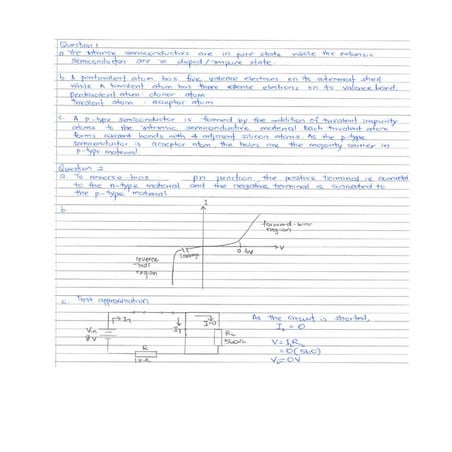 Question 1
a. The intrinsic semiconductors are in pure state while the extrinsic
semiconductors are in doped / impure state.
b. A pentavalent atom has five valence electrons on its outermost shell
while a trivalent atom has three valence electrons on its valence band.
Pentavalent atom : donor atom
Trivalent atom : acceptor atom
c. A p-type semiconductor is formed by the addition of trivalent impurity
atoms to the intrinsic semiconductive material. Each trivalent atom
forms covalent bonds with 4 adjacent silicon atoms. As the p-type
semiconductor is acceptor atom, the holes are the majority carrier in
p-type material.
Question 2
a. To reverse-bias pn junction, the positive terminal is connected
to the n-type material and the negative terminal is connected to
the p-type material.
b.
I
forward-bias
region
V
0.6V
Leakage
reverse
bias
region
c. First approximation
→ I
I=0
Vin
8V
R
1kΩ
RL
560Ω
As the circuit is shorted,
= 0
V = I R
= 0(560)
= 0V